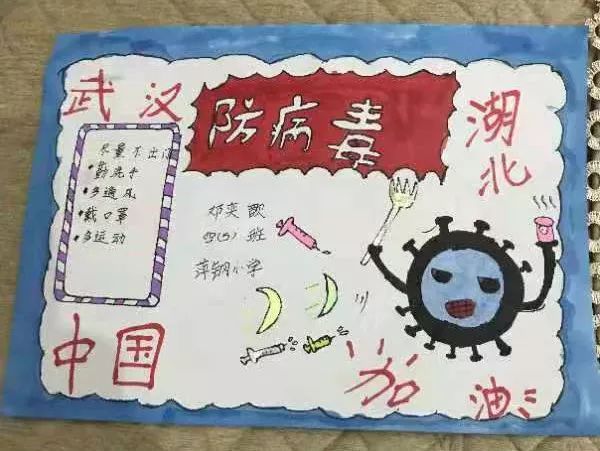 武汉
防病毒
湖北
尽量不出门
•勤洗手
•多通风
•戴口罩
•多运动
邓奕
四(5)班
萍钢小学
中国
加油